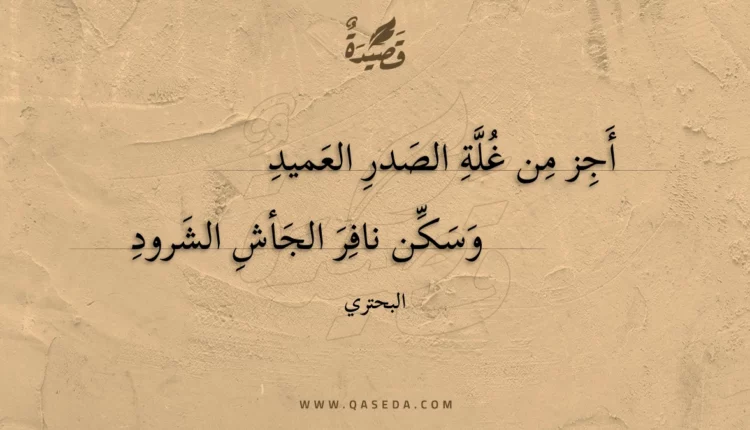 قَصِيدَةٌ
أَجِز مِن غُلَّةِ الصَدرِ العَميدِ
وَسَكِّن نافِرَ الجَأشِ الشَرودِ
البحتري
WWW.QASEDA.COM